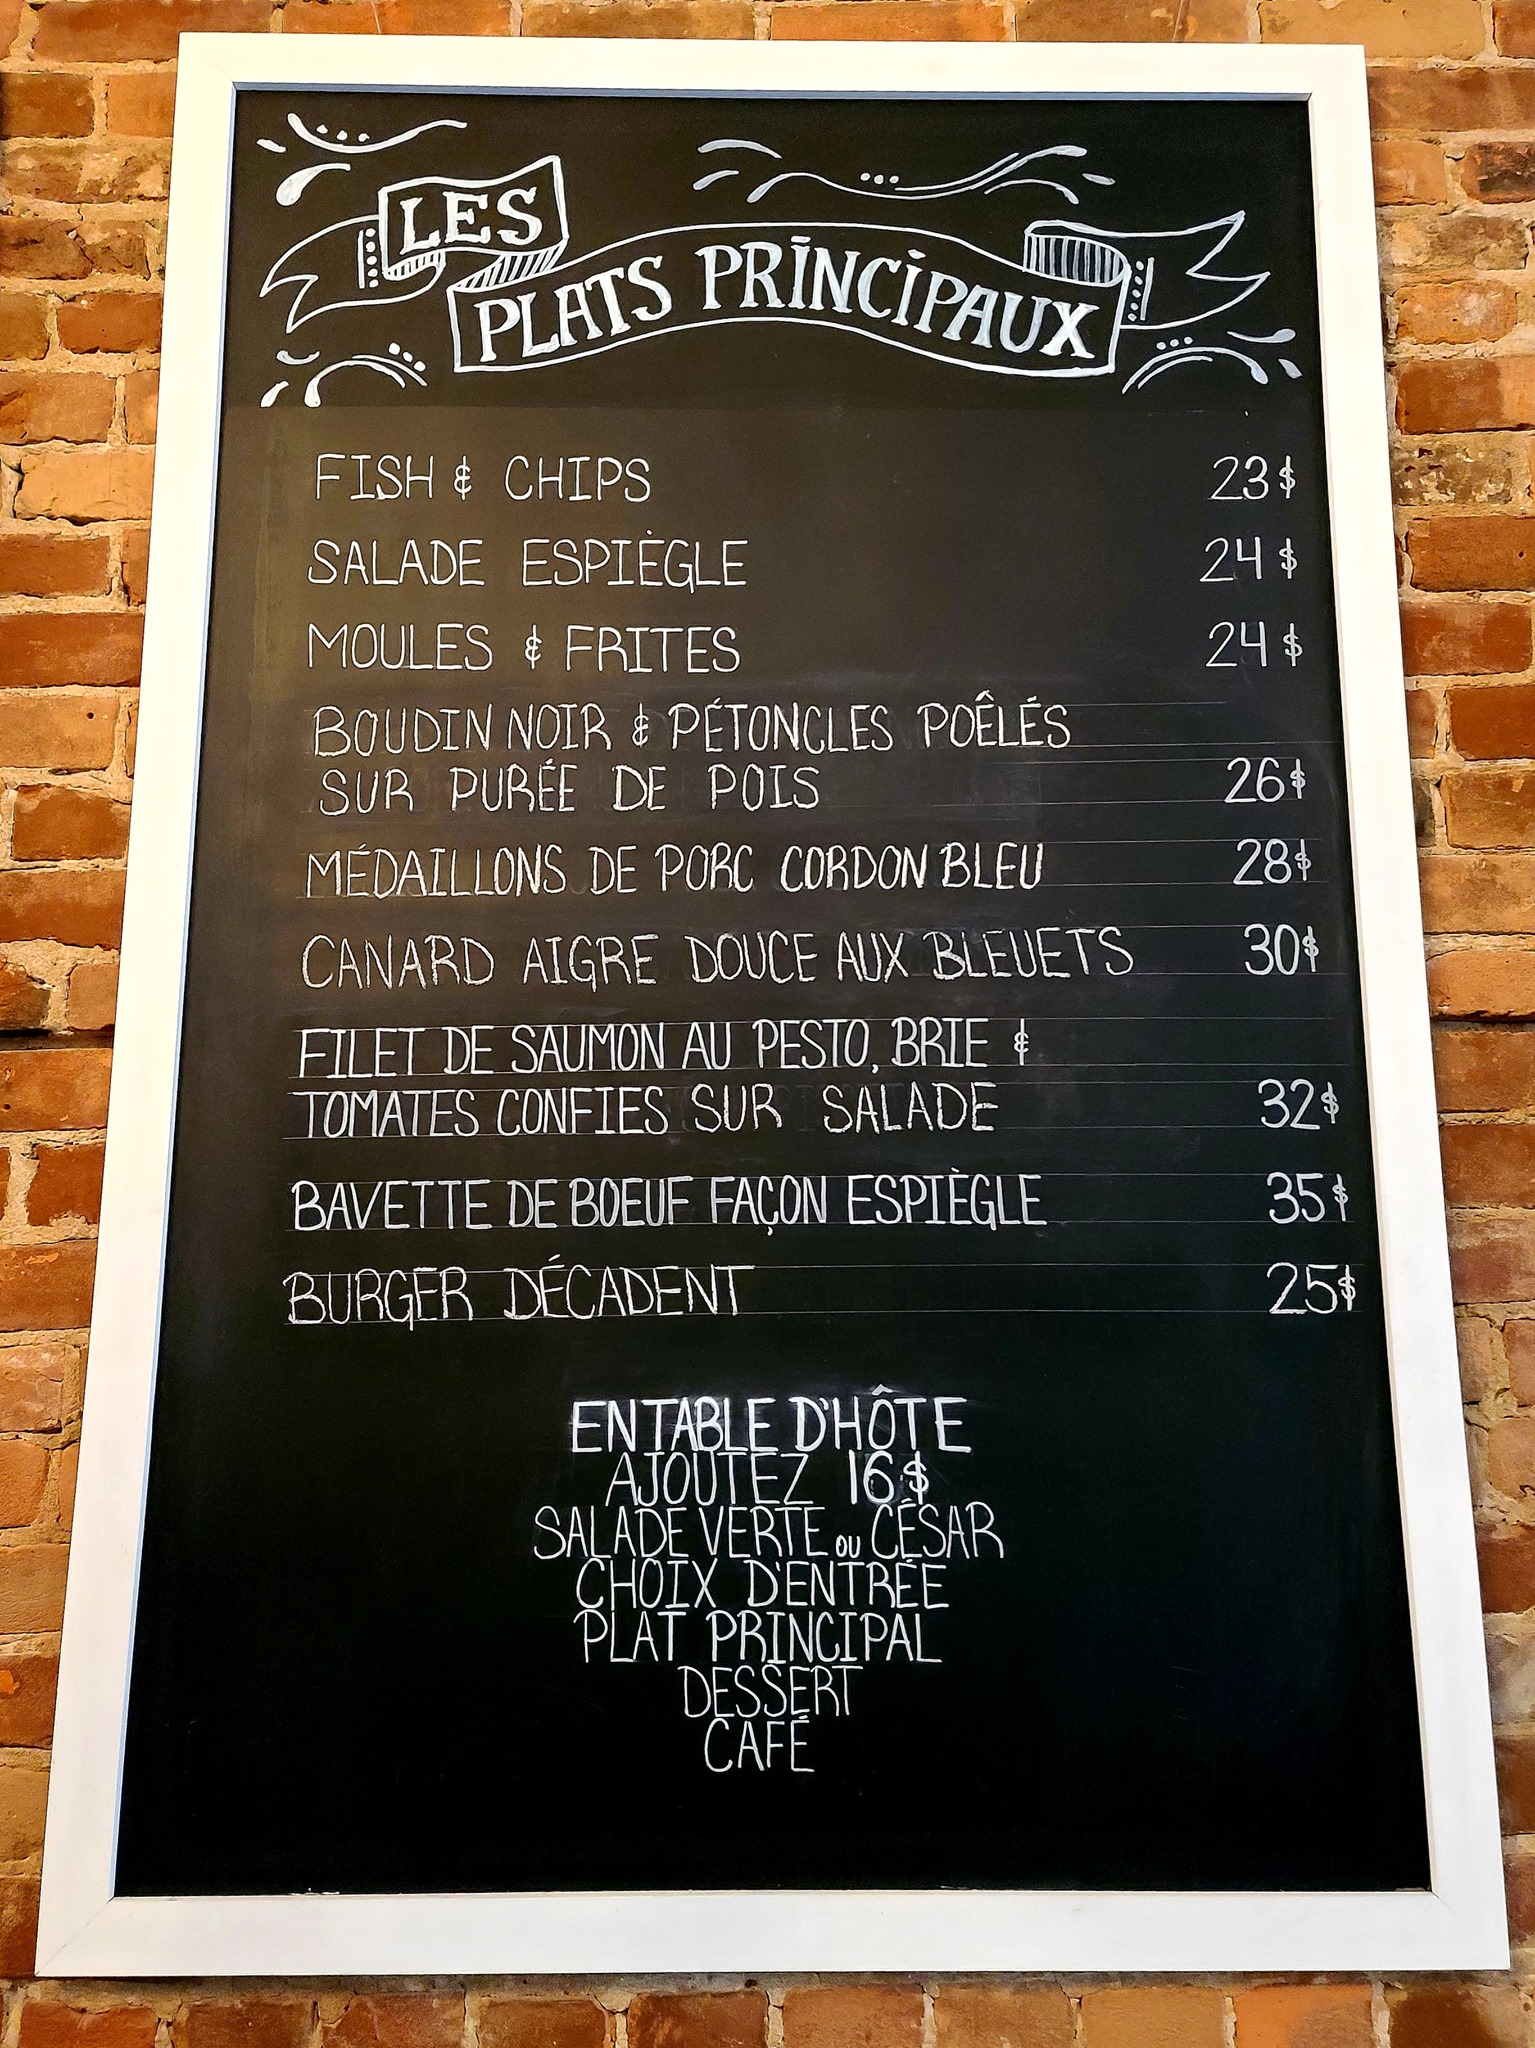 LES
PLATS PRINCIPAUX
FISH & CHIPS 23$
SALADE ESPIÈGLE 24$
MOULES & FRITES 24$
BOUDIN NOIR & PÉTONCLES POÊLÉS
SUR PURÉE DE POIS 26$
MÉDAILLONS DE PORC CORDON BLEU 28$
CANARD AIGRE DOUCE AUX BLEUETS 30$
FILET DE SAUMON AU PESTO, BRIE &
TOMATES CONFIES SUR SALADE 32$
BAVETTE DE BOEUF FAÇON ESPIÈGLE 35$
BURGER DÉCADENT 25$
EN TABLE D'HÔTE
AJOUTEZ 16$
SALADE VERTE OU CÉSAR
CHOIX D'ENTRÉE
PLAT PRINCIPAL
DESSERT
CAFÉ